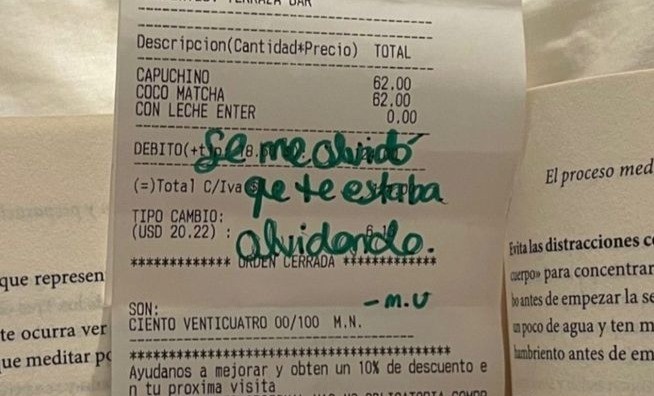 TERRAZA BAR
Descripcion(Cantidad*Precio) TOTAL
CAPUCHINO 62.00
COCO MATCHA 62.00
CON LECHE ENTER 0.00
DEBITO(+t
Se me olvidó
(=)Total C/Iva
que te estaba
TIPO CAMBIO:
(USD 20.22) :
olvidando.
************* ORDEN CERRADA *************
- M.U
SON:
CIENTO VENTICUATRO 00/100 M.N.
Ayudanos a mejorar y obten un 10% de descuento e
n tu proxima visita
que represen
te ocurra ver
ue meditar
El proceso med
Evita las distracciones
cuerpo» para concentrar
antes de empezar la se
un poco de agua y ten m
hambriento antes de em